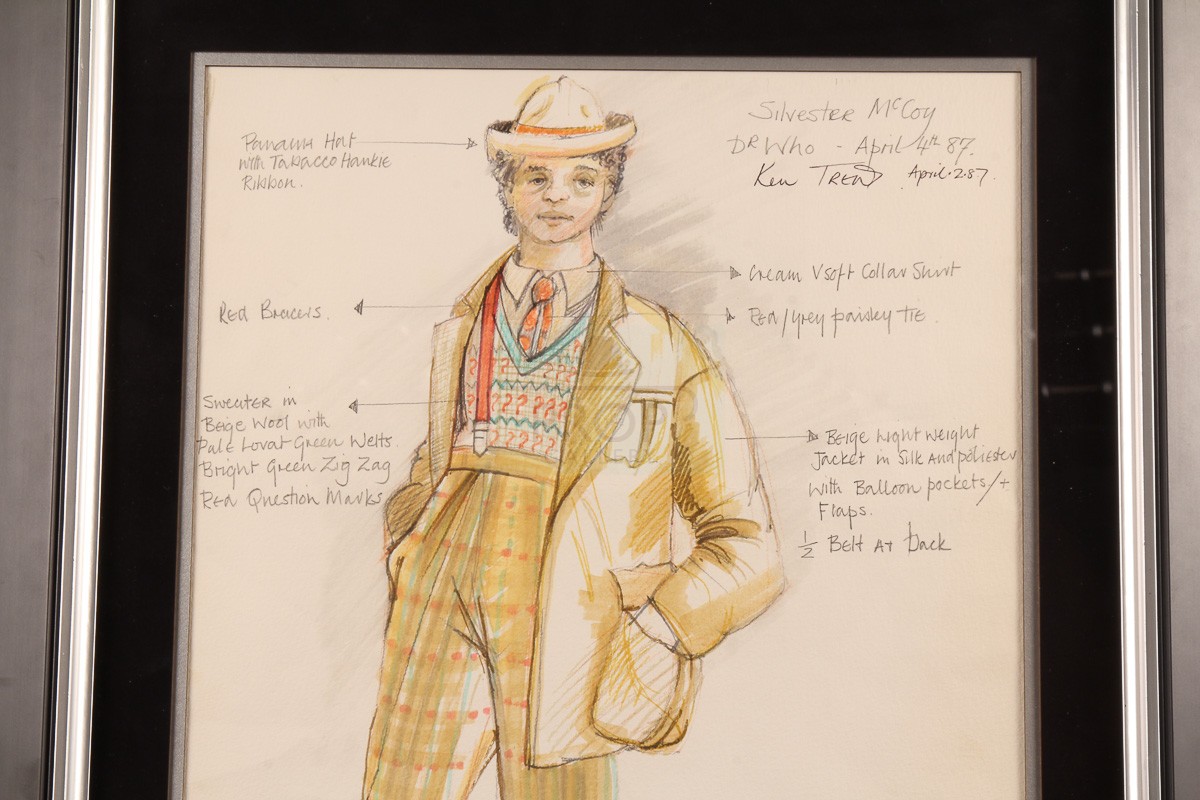 Silvester McCoy
DR Who - April 4th 87.
Ken Trew April.2.87.
Panama Hat
with Tabacco Hankie
Ribbon.
Cream V soft Collar Shirt
Red Bracers.
Red/grey paisley tie.
Sweater in
Beige Wool with
Pale Lovat Green Welts.
Bright Green Zig Zag
Red Question Marks
Beige light weight
Jacket in Silk and poliester
with Balloon pockets/+
Flaps.
1/2 Belt at back